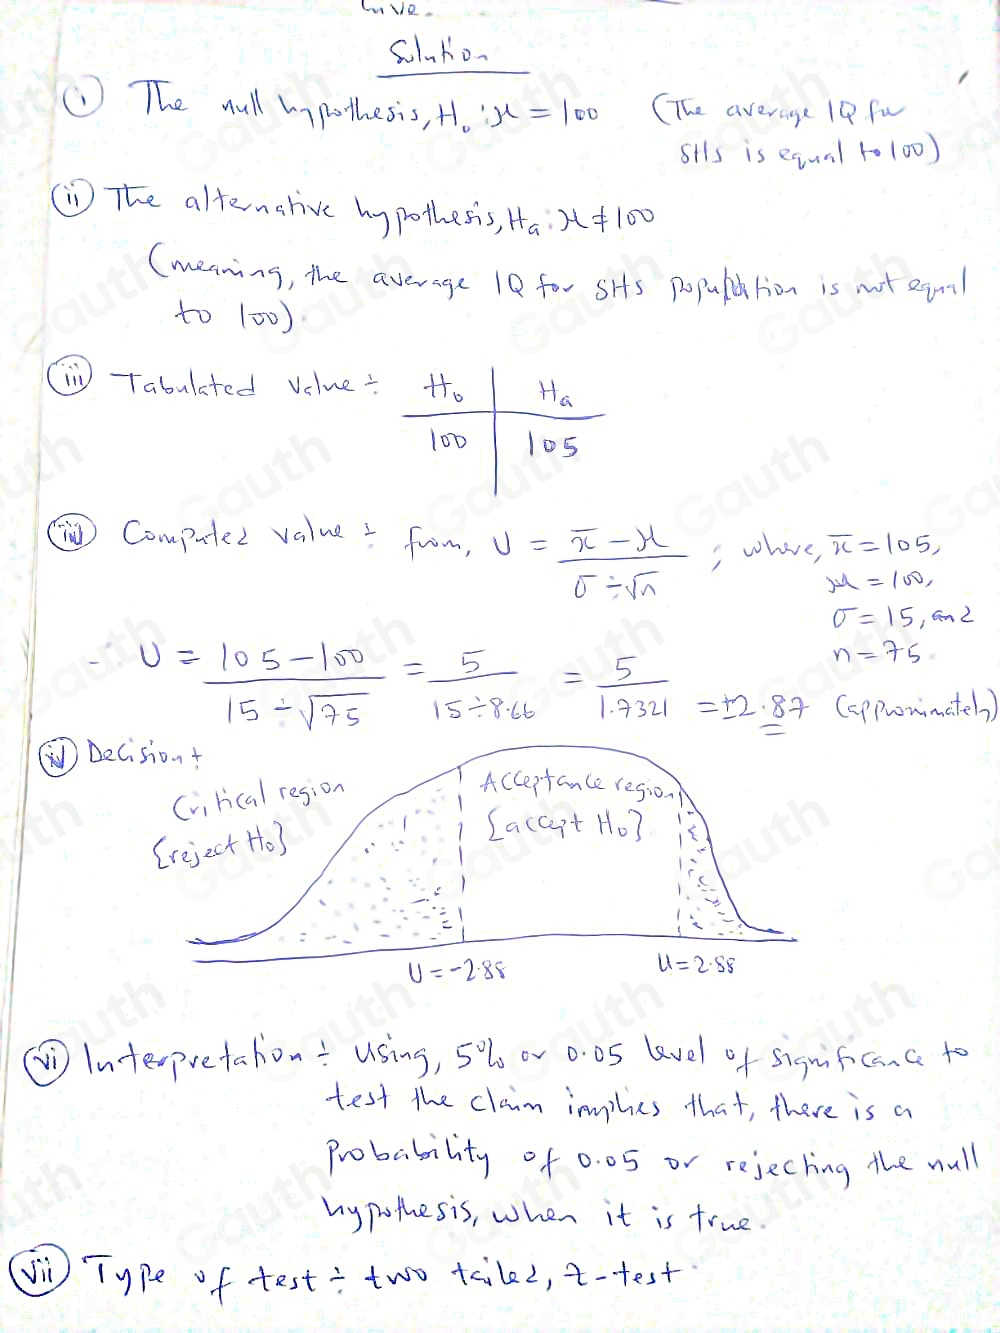 Solution
(i) The null hypothesis, H₀ : μ = 100 (The average IQ for
SHs is equal to 100)
(ii) The alternative hypothesis, Hₐ : μ ≠ 100
(meaning, the average IQ for SHs population is not equal
to 100).
(iii) Tabulated value ÷ H₀ | Hₐ
100 | 105
(iv) Computed value ÷ from, U = (x̄ − μ) / (σ ÷ √n) ; where, x̄ = 105,
μ = 100,
σ = 15, and
n = 75.
∴ U = (105 − 100) / (15 ÷ √75) = 5 / (15 ÷ 8.66) = 5 / 1.7321 = ±2.87 (approximately)
Decision ÷
Critical region
{reject H₀}
Acceptance region
{accept H₀}
U = −2.88
U = 2.88
(vi) Interpretation ÷ Using, 5% or 0.05 level of significance to
test the claim implies that, there is a
probability of 0.05 or rejecting the null
hypothesis, when it is true.
(vii) Type of test ÷ two tailed, z-test.
Gauth